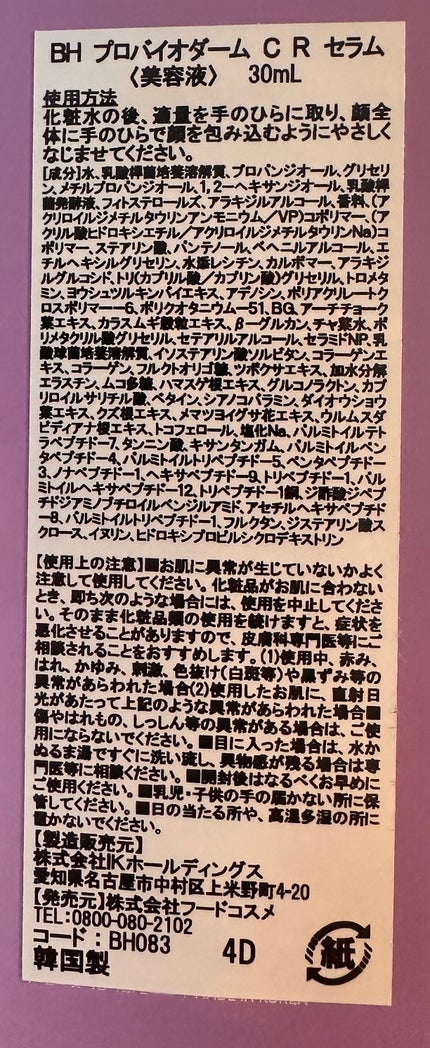 BH プロバイオダーム CR セラム
〈美容液〉 30mL
使用方法
化粧水の後、適量を手のひらに取り、顔全
体に手のひらで顔を包み込むようにやさしく
なじませてください。
[成分]水、乳酸桿菌培養溶解質、プロパンジオール、グリセリ
ン、メチルプロパンジオール、1,2-ヘキサンジオール、乳酸桿
菌発酵液、フィトステロールズ、アラキジルアルコール、香料、(ア
クリロイルジメチルタウリンアンモニウム/VP)コポリマー、(ア
クリル酸ヒドロキシエチル/アクリロイルジメチルタウリンNa)コ
ポリマー、ステアリン酸、パンテノール、ベヘニルアルコール、エ
チルヘキシルグリセリン、水添レシチン、カルボマー、アラキジ
ルグルコシド、トリ(カプリル酸/カプリン酸)グリセリル、トロメタ
ミン、ヨウシュツルキンバイエキス、アデノシン、ポリアクリレートク
ロスポリマー-6、ポリクオタニウム-51、BG、アーチチョーク
葉エキス、カラスムギ穀粒エキス、β-グルカン、チャ葉水、ポ
リメタクリル酸グリセリル、セテアリルアルコール、セラミドNP、乳
酸球菌培養溶解質、イソステアリン酸ソルビタン、コラーゲンエ
キス、コラーゲン、フルクトオリゴ糖、ツボクサエキス、加水分解
エラスチン、ムコ多糖、ハマスゲ根エキス、グルコノラクトン、カプ
リロイルサリチル酸、ベタイン、シアノコバラミン、ダイオウショウ
葉エキス、クズ根エキス、メマツヨイグサ花エキス、ウルムスダ
ビディアナ根エキス、トコフェロール、塩化Na、パルミトイルテト
ラペプチド-7、タンニン酸、キサンタンガム、パルミトイルペン
タペプチド-4、パルミトイルトリペプチド-5、ペンタペプチド-
3、ノナペプチド-1、ヘキサペプチド-9、トリペプチド-1、パル
ミトイルヘキサペプチド-12、トリペプチド-1銅、ジ酢酸ジペプ
チドジアミノブチロイルベンジルアミド、アセチルヘキサペプチド
-8、パルミトイルトリペプチド-1、フルクタン、ジステアリン酸ス
クロース、イヌリン、ヒドロキシプロピルシクロデキストリン
【使用上の注意】■お肌に異常が生じていないかよく
注意して使用してください。化粧品がお肌に合わない
とき、即ち次のような場合には、使用を中止してくださ
い。そのまま化粧品類の使用を続けますと、症状を
悪化させることがありますので、皮膚科専門医等にご
相談されることをおすすめします。(1)使用中、赤み、
はれ、かゆみ、刺激、色抜け(白斑等)や黒ずみ等の
異常があらわれた場合(2)使用したお肌に、直射日
光があたって上記のような異常があらわれた場合■
傷やはれもの、しっしん等の異常がある場合は、ご使
用にならないでください。■目に入った場合は、水か
ぬるま湯ですぐに洗い流し、異物感が残る場合は専
門医等に相談ください。■開封後はなるべくお早めに
ご使用ください。■乳児・子供の手の届かない所に保
管してください。■日の当たる所や、高温多湿の所に
置かないでください。
【製造販売元】
株式会社IKホールディングス
愛知県名古屋市中村区上米野町4-20
【発売元】株式会社フードコスメ
TEL:0800-080-2102
コード:BH083 4D
韓国製
紙